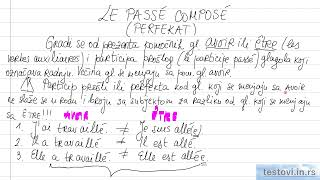 LE PASSÉ COMPOSÉ
(PERFEKAT)
Gradi se od prezenta pomoćnih gl. AVOIR ili ÊTRE (les
verbes auxiliaires) i participa prošlog (le participe passé) glagola koji
označava radnju. Većina gl. se menjaju sa pom. gl. avoir.
! Particip prošli ili perfekta kod gl. koji se menjaju sa AVOIR
ne slaže se u rodu i broju sa subjektom za razliku od gl. koji se menjaju
sa ÊTRE!!! AVOIR ÊTRE
1. J'ai travaillé. ≠ Je suis allé(e).
2. Il a travaillé. ≠ Il est allé.
3. Elle a travaillé. ≠ Elle est allée.
testovi.in.rs